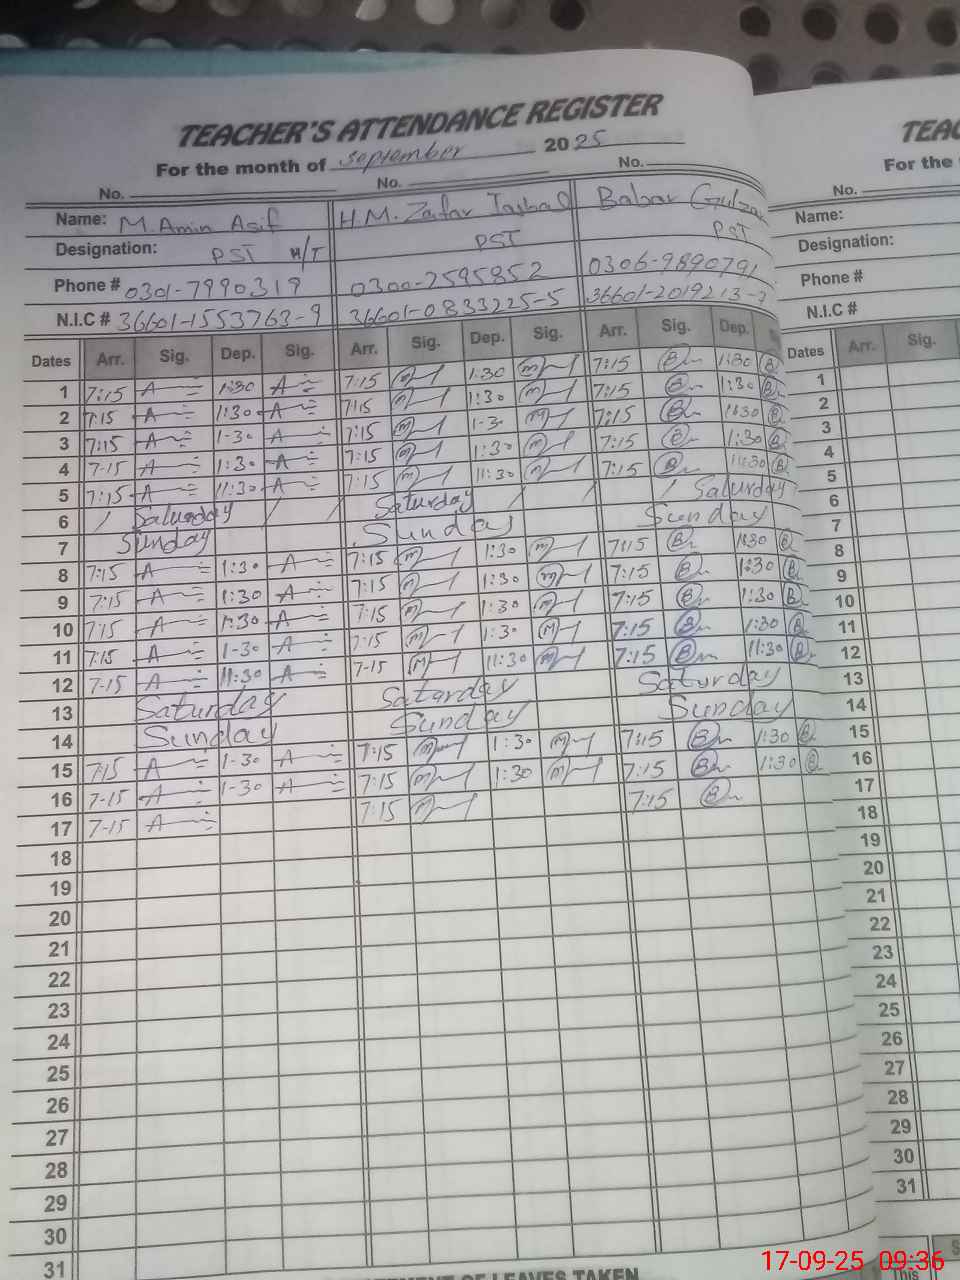 TEACHER'S ATTENDANCE REGISTER
For the month of September 2025
No. No. No.
Name: M. Amin Asif H.M. Zafar Iqbal Babar Gulzar
Designation: PST H/T PST PST
Phone # 0301-7990319 0300-2595852 0306-9890791
N.I.C # 36601-1553763-9 36601-0833225-5 36601-2019213-7
Dates Arr. Sig. Dep. Sig. Arr. Sig. Dep. Sig. Arr. Sig. Dep.
1 7:15 A 1:30 A 7:15 m 1:30 m 7:15 B 1:30 B
2 7:15 A 1:30 A 7:15 m 1:30 m 7:15 B 1:30 B
3 7:15 A 1-30 A 7:15 m 1-30 m 7:15 B 1:30 B
4 7-15 A 1:30 A 7:15 m 1:30 m 7:15 B 1:30 B
5 7:15 A 11:30 A 7:15 m 11:30 m 7:15 B 11:30 B
6 Saturday Saturday Saturday
7 Sunday Sunday Sunday
8 7:15 A 1:30 A 7:15 m 1:30 m 7:15 B 1:30 B
9 7:15 A 1:30 A 7:15 m 1:30 m 7:15 B 1:30 B
10 7:15 A 1:30 A 7:15 m 1:30 m 7:15 B 1:30 B
11 7:15 A 1-30 A 7:15 m 1:30 m 7:15 B 1:30 B
12 7-15 A 11:30 A 7-15 m 11:30 m 7:15 B 11:30 B
13 Saturday Saturday Saturday
14 Sunday Sunday Sunday
15 7:15 A 1-30 A 7:15 m 1:30 m 7:15 B 1:30 B
16 7-15 A 1-30 A 7:15 m 1:30 m 7:15 B 1:30 B
17 7-15 A 7:15 m 7:15 B
18
19
20
21
22
23
24
25
26
27
28
29
30
31
OF LEAVES TAKEN
TEAC
For the
No.
Name:
Designation:
Phone #
N.I.C #
Dates Arr. Sig.
1
2
3
4
5
6
7
8
9
10
11
12
13
14
15
16
17
18
19
20
21
22
23
24
25
26
27
28
29
30
31
This
17-09-25 09:36